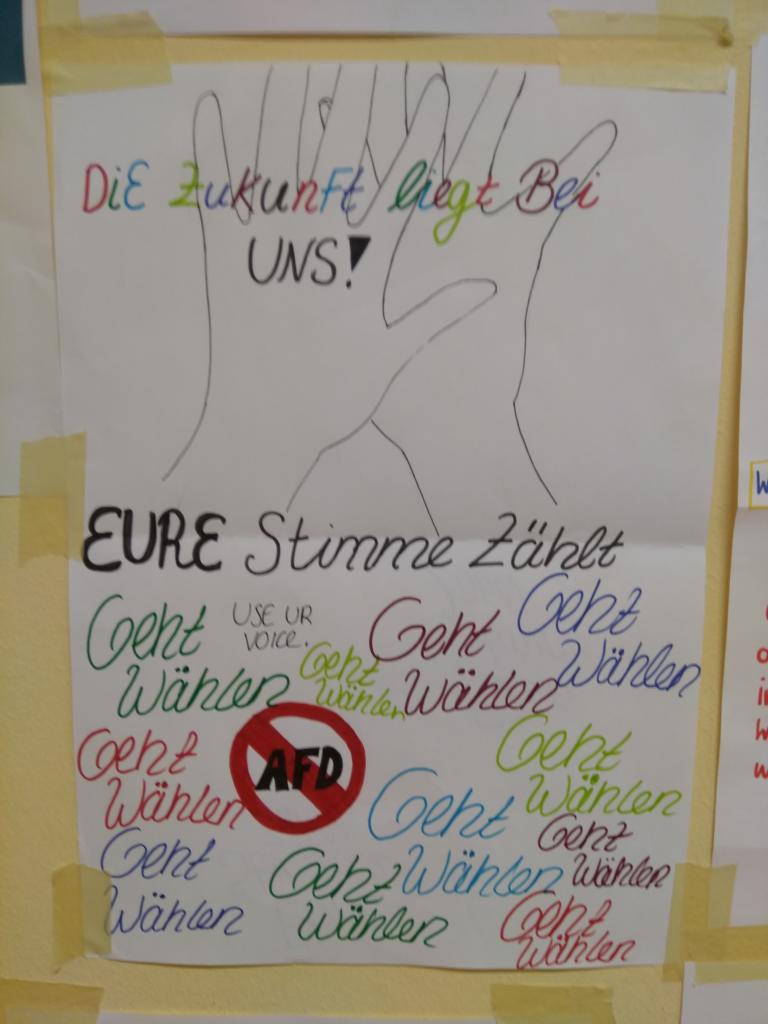 DiE Zukunft liegt Bei
UNS!
EURE Stimme Zählt
Geht
Wählen
USE UR
VOICE.
Geht
Wählen
Geht
Wählen
Geht
Wählen
Geht
Wählen
AFD
Geht
Wählen
Geht
Wählen
Geht
Wählen
Geht
Wählen
Geht
Wählen
Geht
Wählen